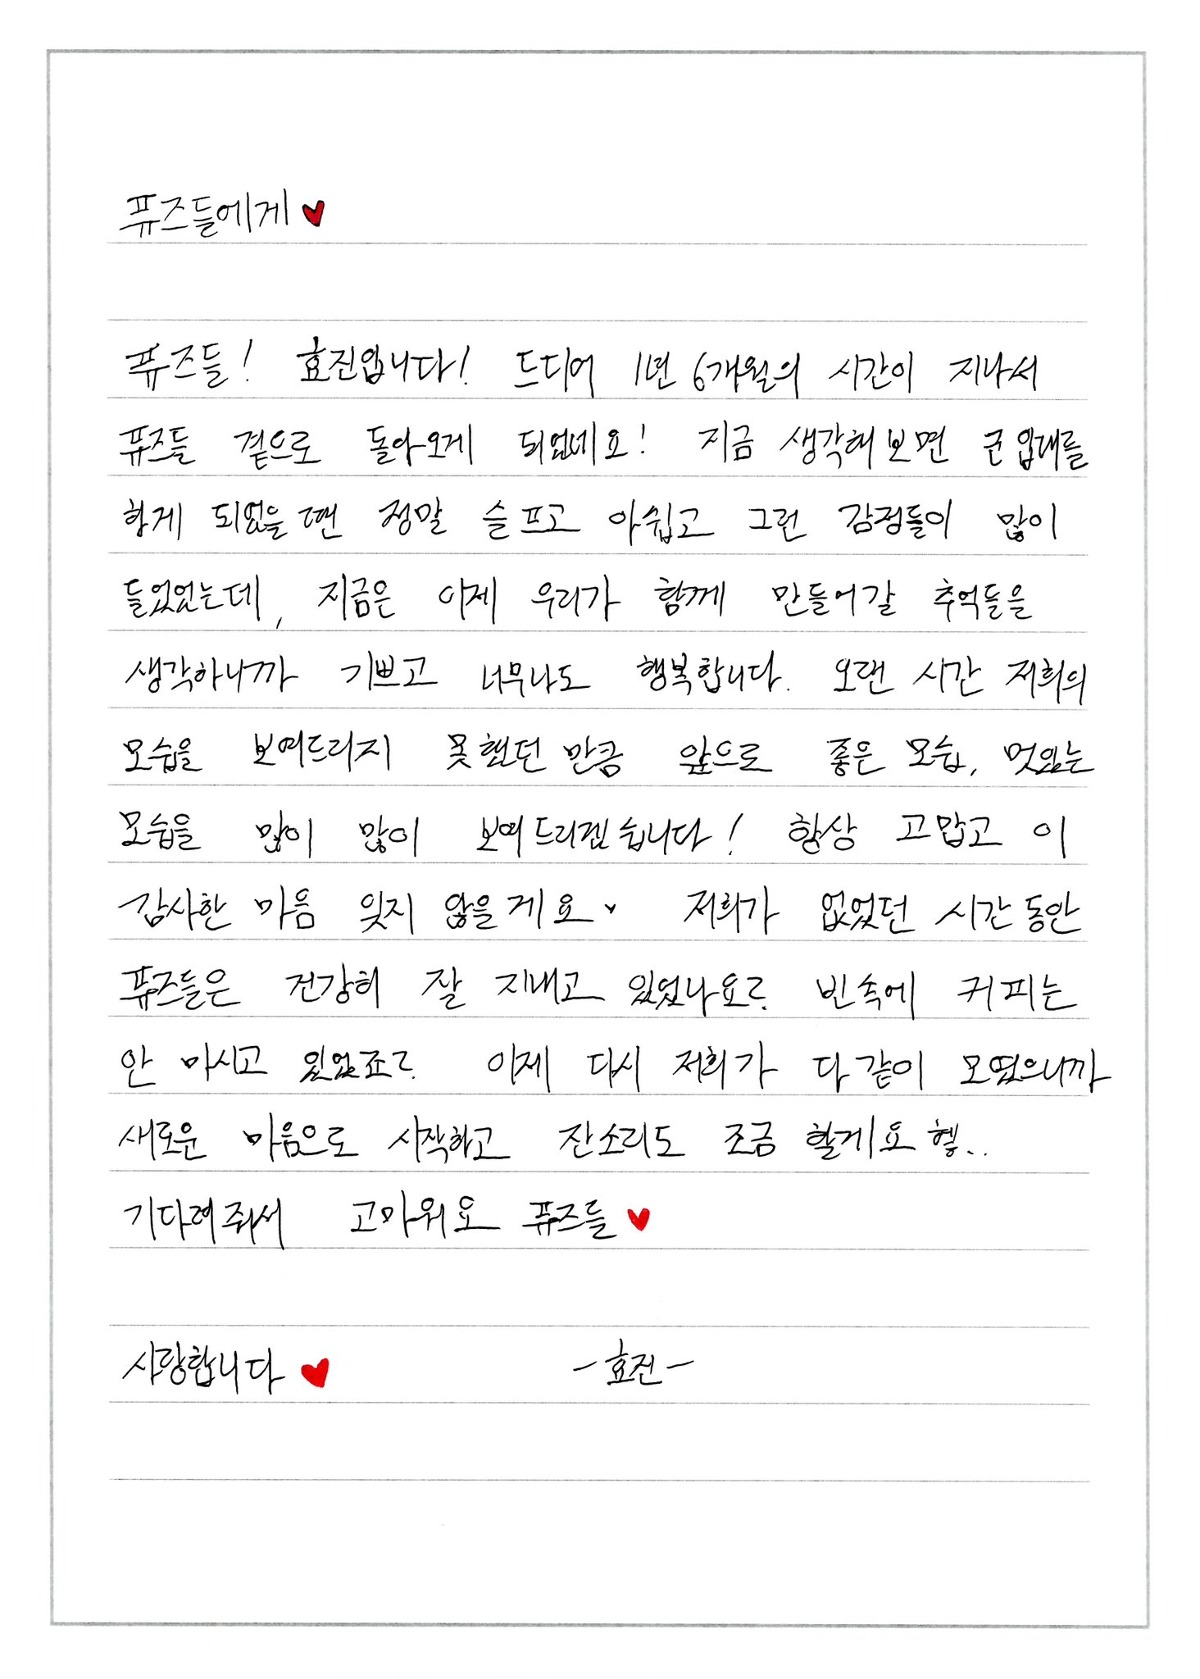 퓨즈들에게 ♥
퓨즈들! 효진입니다! 드디어 1년 6개월의 시간이 지나서
퓨즈들 곁으로 돌아오게 되었네요! 지금 생각해보면 군입대를
하게 되었을 땐 정말 슬프고 아쉽고 그런 감정들이 많이
들었었는데, 지금은 이제 우리가 함께 만들어갈 추억들을
생각하니까 기쁘고 너무나도 행복합니다. 오랜 시간 저희의
모습을 보여드리지 못했던 만큼 앞으로 좋은 모습, 멋있는
모습을 많이 많이 보여드리겠습니다! 항상 고맙고 이
감사한 마음 잊지 않을게요♥ 저희가 없었던 시간동안
퓨즈들은 건강히 잘 지내고 있었나요? 빈속에 커피는
안 마시고 있었죠? 이제 다시 저희가 다같이 모였으니까
새로운 마음으로 시작하고 잔소리도 조금 할게요 헿..
기다려줘서 고마워요 퓨즈들 ♥
사랑합니다 ♥ -효진-